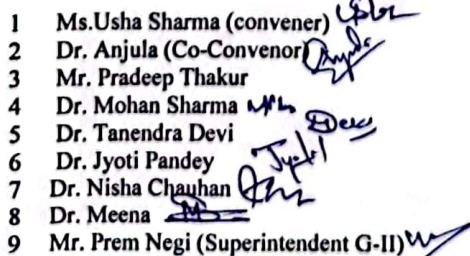 1 Ms.Usha Sharma (convener)
2 Dr. Anjula (Co-Convenor)
3 Mr. Pradeep Thakur
4 Dr. Mohan Sharma
5 Dr. Tanendra Devi
6 Dr. Jyoti Pandey
7 Dr. Nisha Chauhan
8 Dr. Meena
9 Mr. Prem Negi (Superintendent G-II)